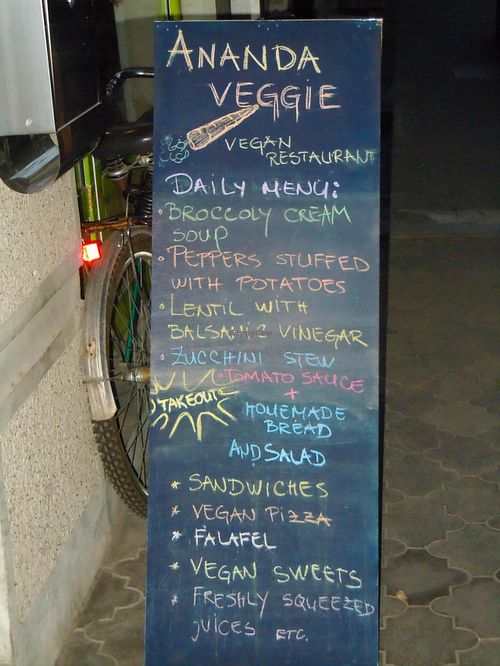 ANANDA
VEGGIE
VEGAN
RESTAURANT
DAILY MENU:
• BROCCOLY CREAM
SOUP
• PEPPERS STUFFED
WITH POTATOES
• LENTIL WITH
BALSAMIC VINEGAR
• ZUCCHINI STEW
• TOMATO SAUCE
+
TAKEOUT
HOUMEMADE
BREAD
AND SALAD
* SANDWICHES
* VEGAN PIZZA
* FALAFEL
* VEGAN SWEETS
* FRESHLY SQUEEZED
JUICES ETC.